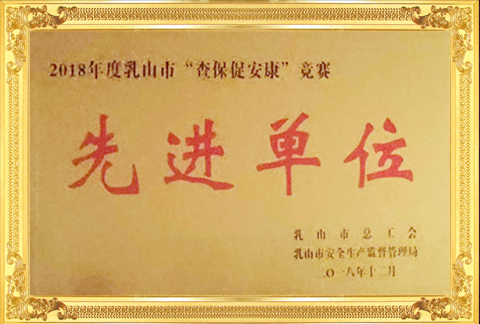 2018年度乳山市“查保促安康”竞赛
先进单位
乳山市总工会
乳山市安全生产监督管理局
二〇一八年十二月